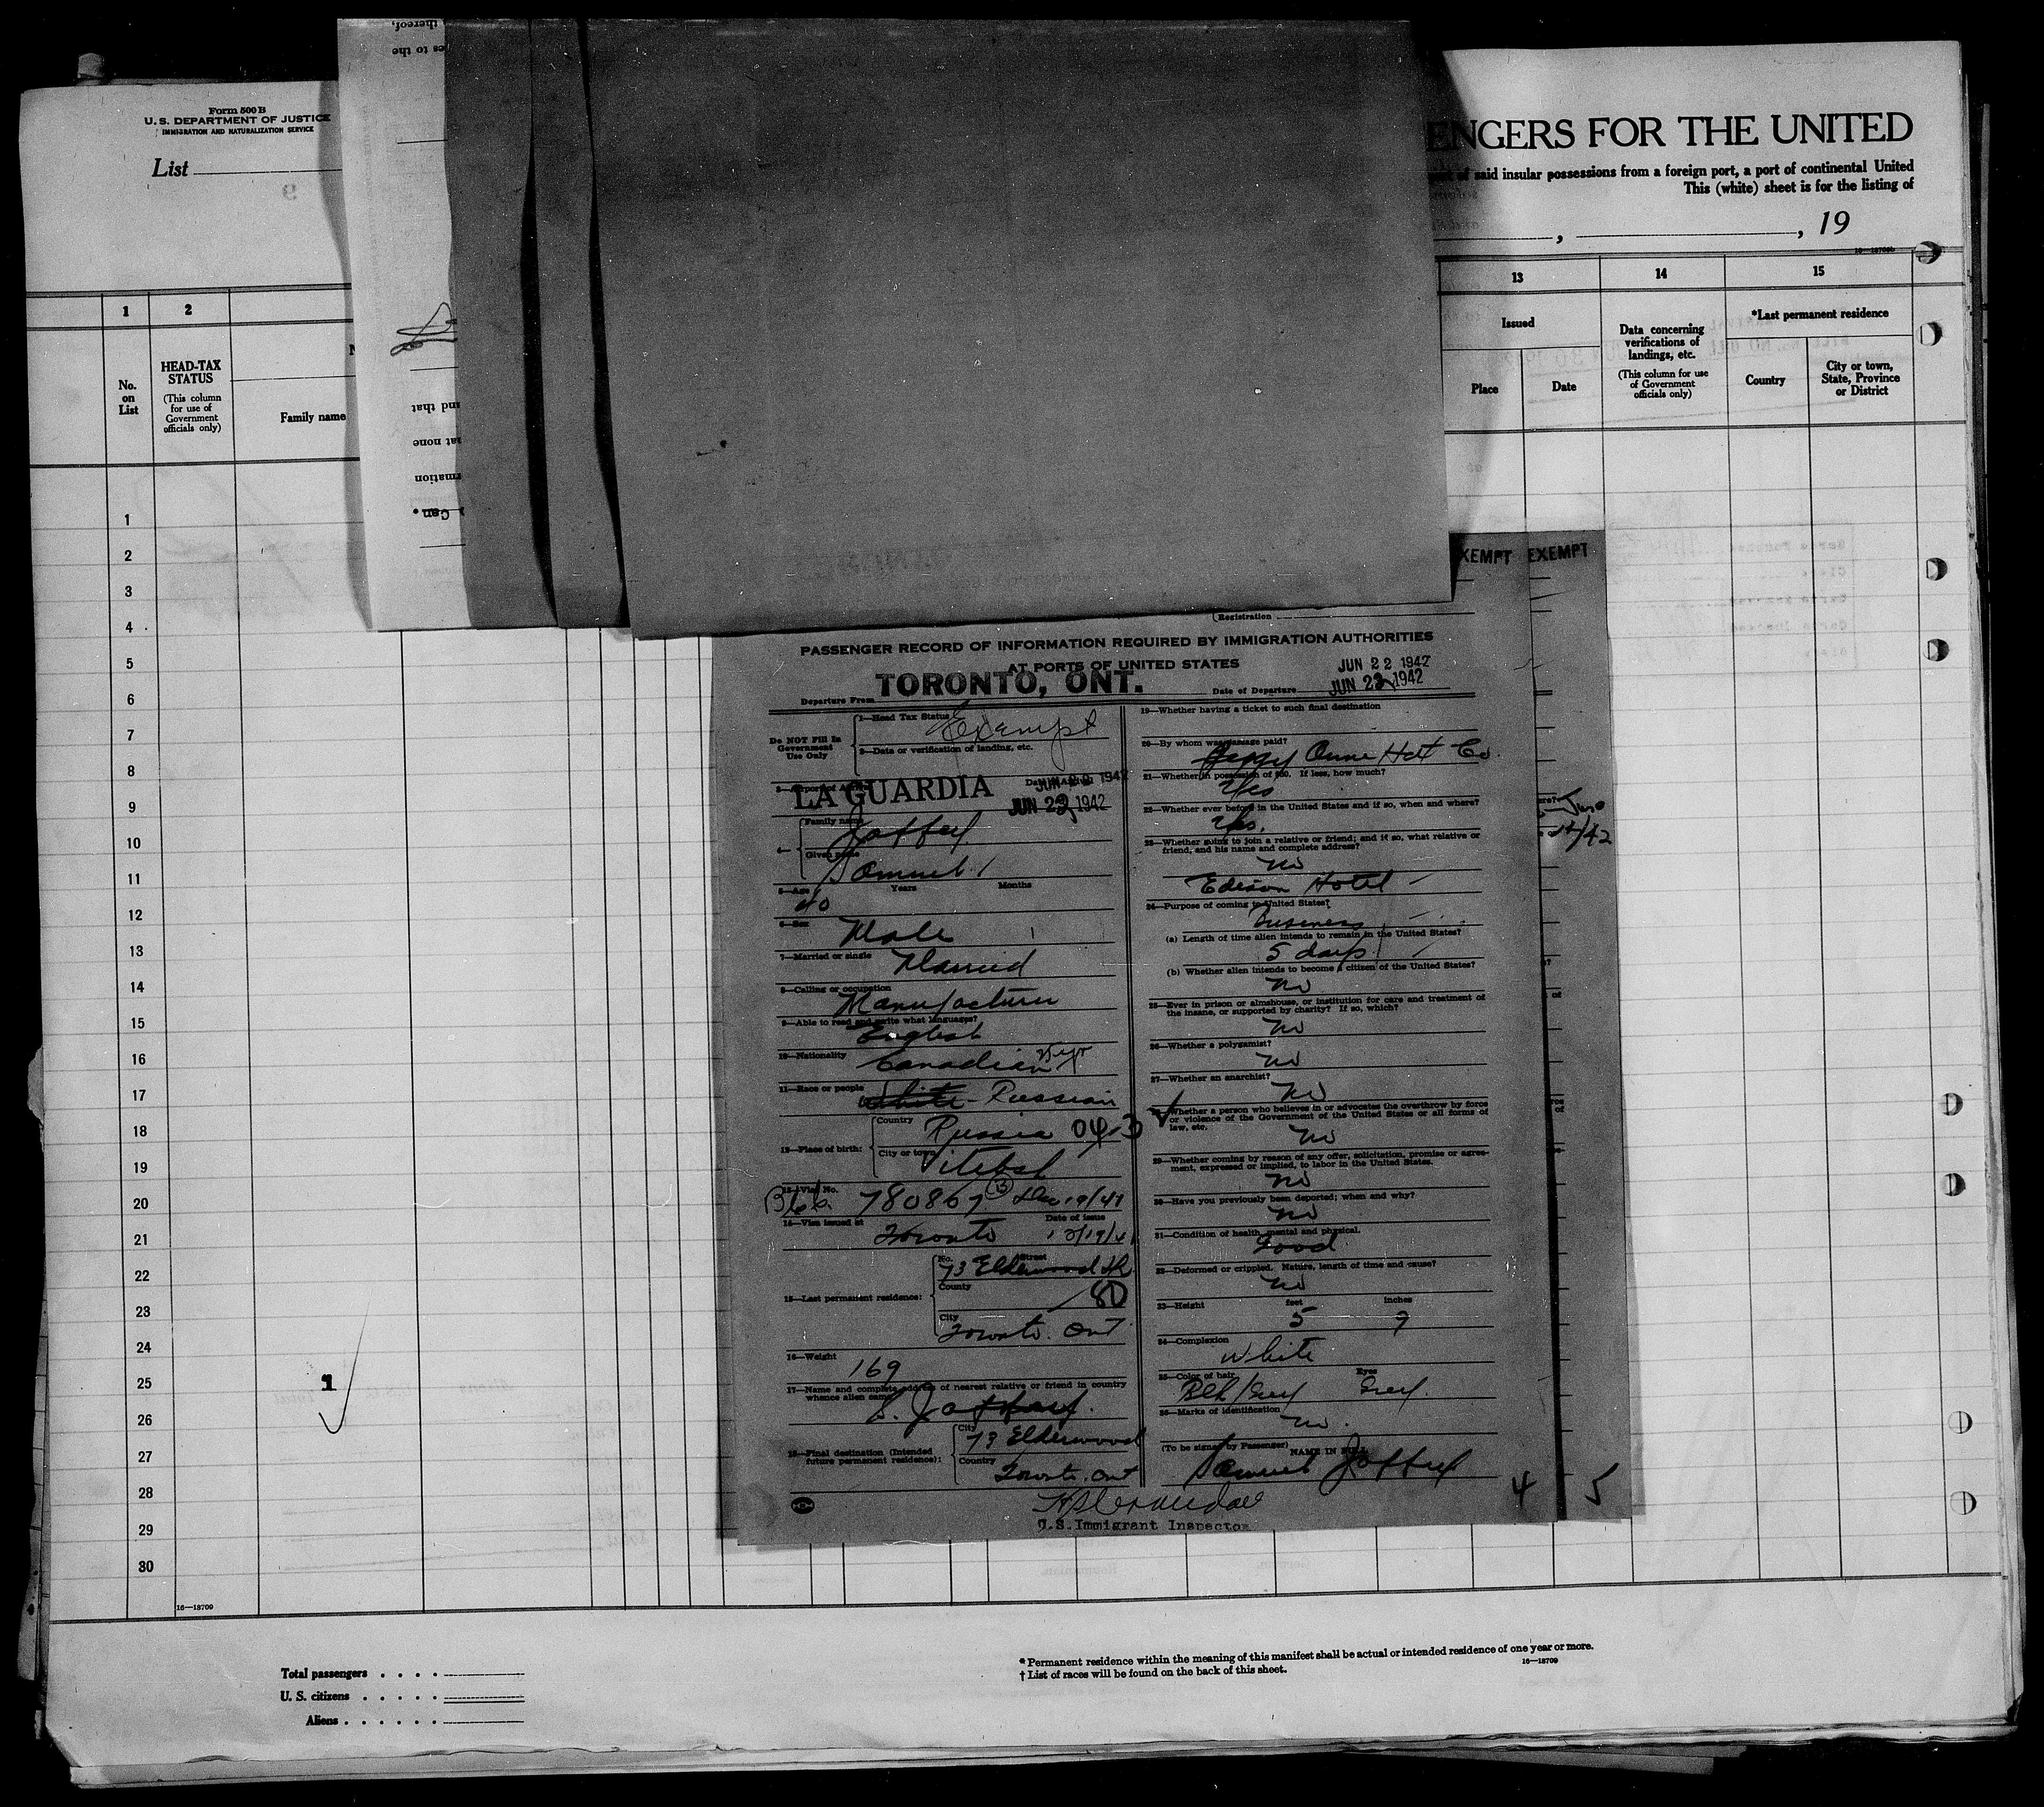 Form 500 B
U. S. DEPARTMENT OF JUSTICE
IMMIGRATION AND NATURALIZATION SERVICE
List
thereof,
es to the
and that
at none
rmation
Can.
ENGERS FOR THE UNITED
said insular possessions from a foreign port, a port of continental United
This (white) sheet is for the listing of
, , 19
1 2
HEAD-TAX STATUS
(This column for use of Government officials only)
No. on List
Family name
13 14 15
Issued
Place
Date
Data concerning verifications of landings, etc.
(This column for use of Government officials only)
*Last permanent residence
Country
City or town, State, Province or District
1
2
3
4
5
6
7
8
9
10
11
12
13
14
15
16
17
18
19
20
21
22
23
24
25 1
26
27
28
29
30
16—18709
EXEMPT EXEMPT
Registration
PASSENGER RECORD OF INFORMATION REQUIRED BY IMMIGRATION AUTHORITIES
AT PORTS OF UNITED STATES
JUN 22 1942
Departure From TORONTO, ONT. Date of Departure JUN 22 1942
Do NOT Fill In Government Use Only
1—Head Tax Status Exempt
2—Data or verification of landing, etc.
LA GUARDIA JUN 22 1942
JUN 22 1942
4— Family name
Given name Samuel
5—Age Years Months
40
6—Sex Male
7—Married or single Married
8—Calling or occupation
Manufacturer
9—Able to read and write what languages?
English
10—Nationality Canadian
11—Race or people White - Russian
12—Place of birth: Country Russia
City or town Vitebsk
13—Visa No. 780867 Dec 19/41
14—Visa issued at Toronto Date of issue 12/19/41
15—Last permanent residence: No. Street
73 Elderwood
County
City
Toronto. Ont
16—Weight 169
17—Name and complete address of nearest relative or friend in country whence alien came
18—Final destination (Intended future permanent residence): City 73 Elderwood
Country Toronto. Ont
19—Whether having a ticket to such final destination
20—By whom was passage paid?
Peggy Anne Hat Co.
21—Whether in possession of $50. If less, how much?
Yes
22—Whether ever before in the United States and if so, when and where?
Yes.
23—Whether going to join a relative or friend; and if so, what relative or friend, and his name and complete address?
no
Edison Hotel
24—Purpose of coming to United States?
Business
(a) Length of time alien intends to remain in the United States?
5 days
(b) Whether alien intends to become a citizen of the United States?
no
25—Ever in prison or almshouse, or institution for care and treatment of the insane, or supported by charity? If so, which?
no
26—Whether a polygamist?
no
27—Whether an anarchist?
no
28—Whether a person who believes in or advocates the overthrow by force or violence of the Government of the United States or all forms of law, etc.
no
29—Whether coming by reason of any offer, solicitation, promise or agreement, expressed or implied, to labor in the United States.
no
30—Have you previously been deported; when and why?
no
31—Condition of health, mental and physical.
Good
32—Deformed or crippled. Nature, length of time and cause?
no
33—Height feet inches
5 9
34—Complexion
White
35—Color of hair Eyes
Blk/Grey Grey.
36—Marks of identification
no.
(To be signed by Passenger) NAME IN FULL
Samuel
4 5
U.S. Immigrant Inspector
Total passengers . . . .
U. S. citizens . . . . .
Aliens . . . . . .
* Permanent residence within the meaning of this manifest shall be actual or intended residence of one year or more.
† List of races will be found on the back of this sheet.
16—18709